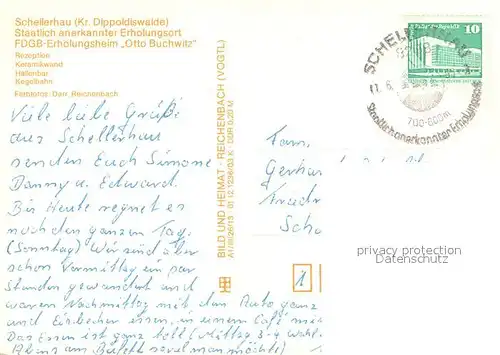 Schellerhau (Kr. Dippoldiswalde)
Staatlich anerkannter Erholungsort
FDGB-Erholungsheim „Otto Buchwitz"
Rezeption
Keramikwand
Hallenbar
Kegelbahn
Fotos: Darr, Reichenbach
Viele liebe Grüße
aus Schellerhau
senden Euch Simone
Danny u. Edward.
Bis Heute regnet es
noch den ganzen Tag.
(Sonntag) Wir sind aber
schon Vormittag ein par
Stunden gewandert und
waren Nachmittag mit dem Auto ganz
und Eisbecher essen, in einem Café
Das Essen ist ganz toll (Mittag 3-4 Wahl
Abens am Büfett soviel man möchte)
BILD UND HEIMAT · REICHENBACH (VOGTL)
A1/III/26/13 01 12 1236/03 K · DDR 0,20 M
10
DDR
SCHELLERHAU
700-800m
Staatlich anerkannter Erholungsort
Fam.
Gerhar
Scho
privacy protection
Datenschutz
1